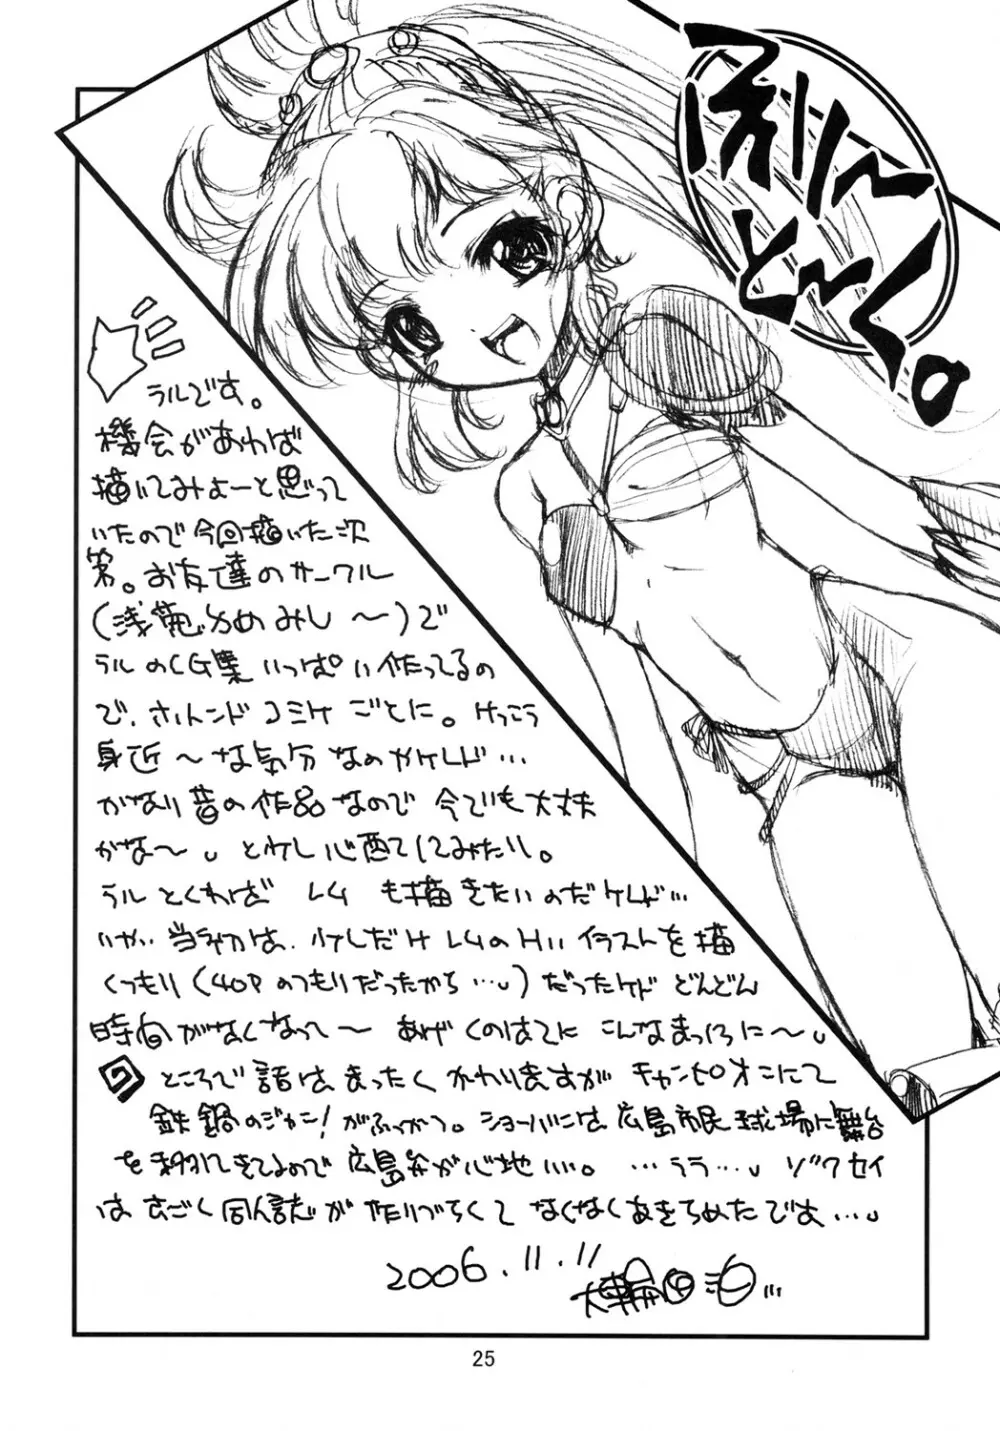 ふり〜
と〜く。
ラルです。
機会があれば
描いてみよーと思って
いたので今回描いた次
第。お友達のサークル
(浅葱かめみし〜)で
ラルのCG集いっぱい作ってるの
で、ホントンドコミケごとに。けっこう
身近〜な気分なのやケレド…
かなり昔の作品なので今でも大丈夫
かな〜。と少し心配してみたり。
ラルとくれば L4 も描きたいのだケレド…
いや、当初は、少しだけL4のHいイラストを描
くつもり(40Pのつもりだったから…)だったケド どんどん
時間がなくなって〜 あげくのはてに こんなまっ白に〜
ところで話はまったくかわりますが チャンピオンにて
鉄鍋のジャン!がふっかつ。ショーバンは広島市民球場に舞台
を移してきてるので広島弁が心地いい。…うう… ゾクセイ
はすごく同人誌が作りづらくて なくなくあきらめたです…
2006.11.11
25